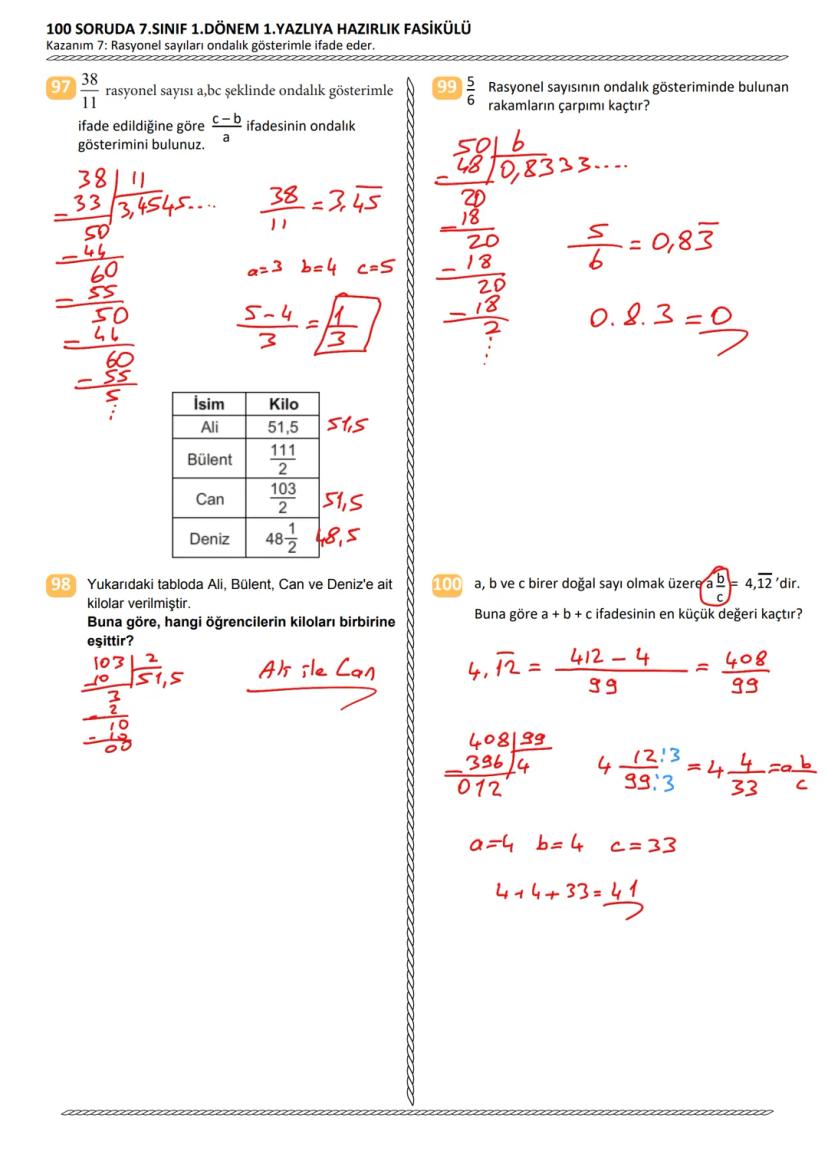 100 SORUDA 7.SINIF 1.DÖNEM 1.YAZLIYA HAZIRLIK FASİKÜLÜ
Kazanım 7: Rasyonel sayıları ondalık gösterimle ifade eder.
97 38/11 rasyonel sayısı a,bc şeklinde ondalık gösterimle
ifade edildiğine göre (c – b)/a ifadesinin ondalık
gösterimini bulunuz.
38 | 11
- 33 3,4545....
50
- 44
60
- 55
50
- 44
60
- 55
5
⋮
38/11 = 3,4̅5̅
a=3 b=4 c=5
(5-4)/3 = 1/3
İsim Kilo
Ali 51,5 51,5
Bülent 111/2
Can 103/2 51,5
Deniz 48 1/2 48,5
98 Yukarıdaki tabloda Ali, Bülent, Can ve Deniz'e ait
kilolar verilmiştir.
Buna göre, hangi öğrencilerin kiloları birbirine
eşittir?
103 | 2
- 10 51,5
3
- 2
10
- 10
00
Ali ile Can
99 5/6 Rasyonel sayısının ondalık gösteriminde bulunan
rakamların çarpımı kaçtır?
50 | 6
- 48 0,8333....
20
- 18
20
- 18
20
- 18
2
⋮
5/6 = 0,83̅
0.8.3 = 0
100 a, b ve c birer doğal sayı olmak üzere a b/c = 4,1̅2̅ 'dir.
Buna göre a + b + c ifadesinin en küçük değeri kaçtır?
4,1̅2̅ = (412 - 4)/99 = 408/99
408 | 99
- 396 4
012
4 12:3/99:3 = 4 4/33 = a b/c
a=4 b=4 c=33
4+4+33=41